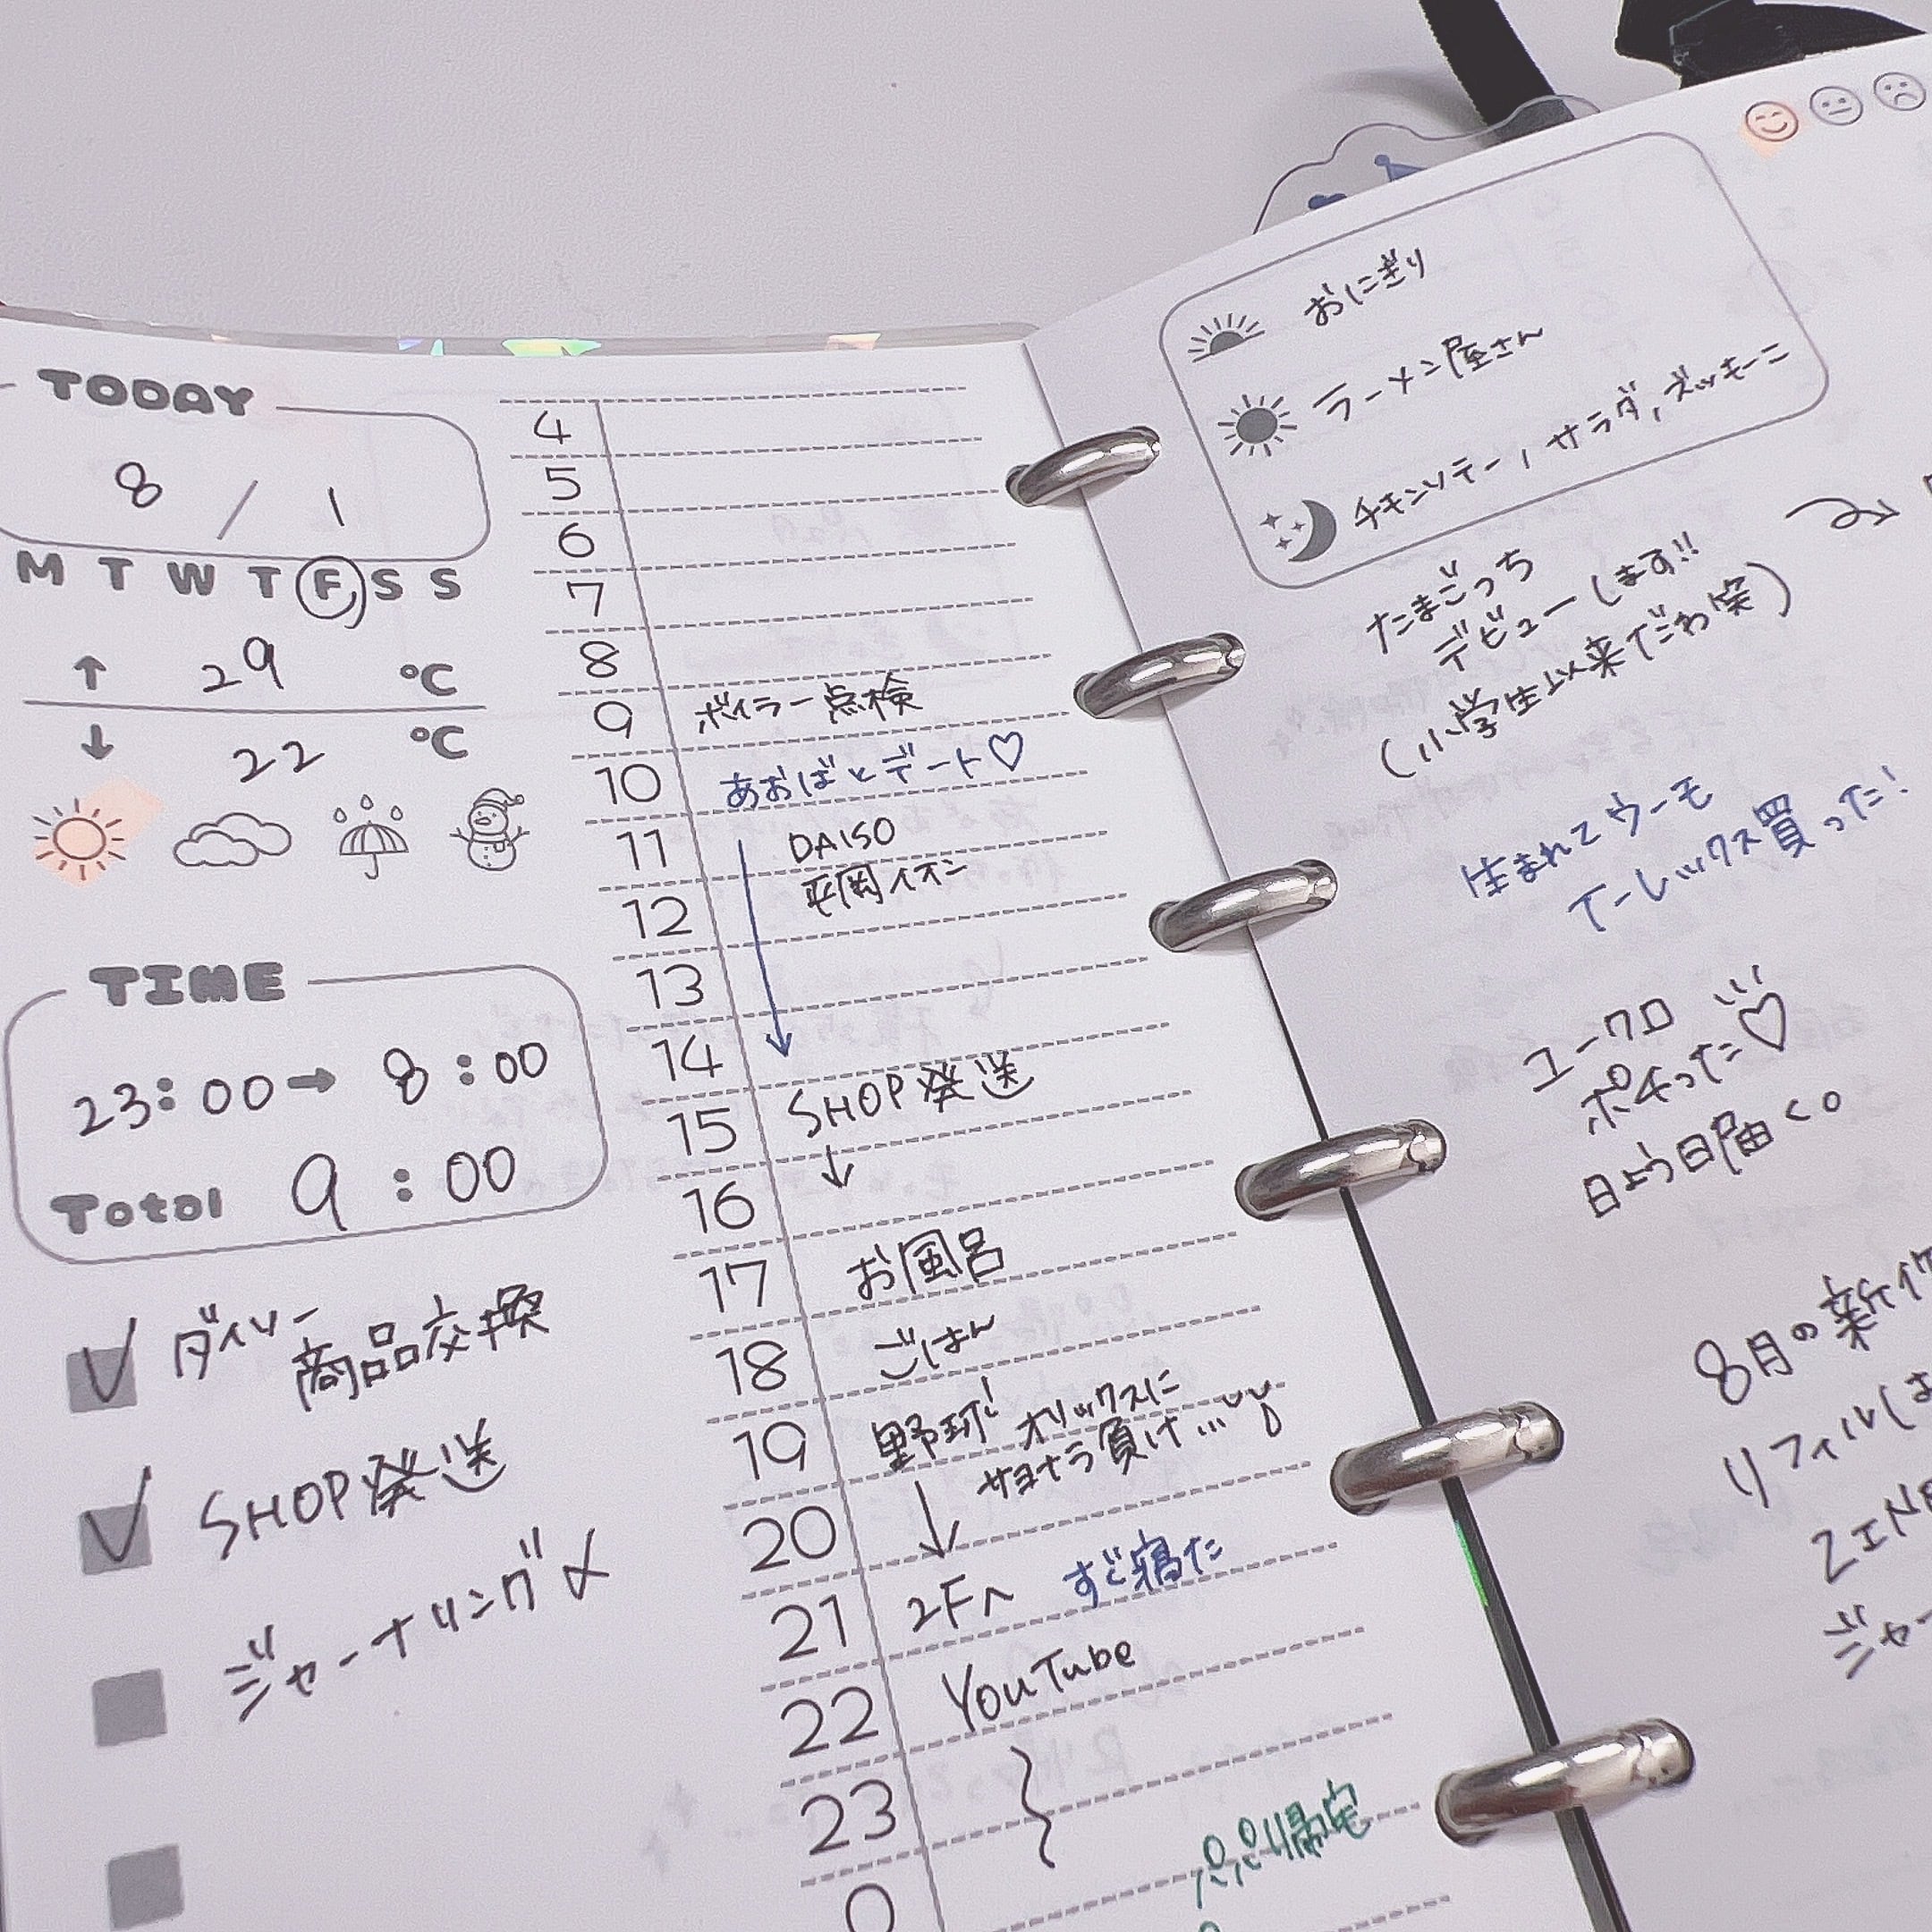 TODAY
8 / 1
M T W T F S S
↑ 29 °C
↓ 22 °C
TIME
23:00 → 8:00
Total 9:00
ダイソー
商品交換
SHOP発送
ジャーナリング〆
4
5
6
7
8
9 ボイラー点検
10 あおばとデート♡
11 DAISO
平岡イオン
12
13
14
15 SHOP発送
↓
16
17 お風呂
18 ごはん
19 野球! オリックスに
サヨナラ負け…
20
21 2Fへ すぐ寝た
22 YouTube
23
0
ぱぱ帰宅
おにぎり
ラーメン屋さん
チキンソテー, サラダ, ズッキーニ
たまごっち
デビューします!!
(小学生以来だわ笑)
生まれてウーモ
ティーレックス買った!
ユニクロ
ポチった♡
日よう日届く。
8月の新作
リフィルは
ZINE
ジャー